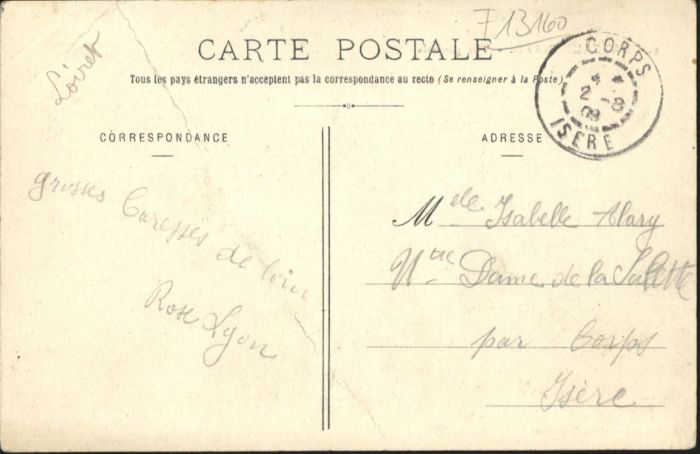 F 13160
Loiret
CARTE POSTALE
Tous les pays étrangers n'acceptent pas la correspondance au recto (Se renseigner à la Poste)
CORPS
2 -8
09
ISÈRE
CORRESPONDANCE
grosses Caresses de loin
Rose Lyon
ADRESSE
Melle Isabelle Alary
Ntre Dame de la Salette
par Corps
Isère